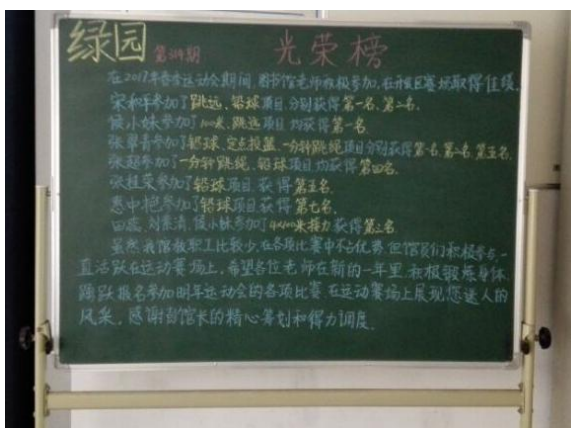 绿园 第314期 光荣榜
在2017年春季运动会期间,图书馆老师积极参加,在开发区赛场取得佳绩。
宋和平参加了跳远、铅球项目,分别获得第一名、第二名。
侯小妹参加了100米、跳远项目均获得第一名。
张翠青参加了铅球、定点投篮、一分钟跳绳项目分别获得第一名、第二名、第五名。
张超参加了一分钟跳绳、铅球项目均获得第四名。
张桂荣参加了铅球项目获得第五名。
惠中艳参加了铅球项目获得第七名。
田蕊、刘素清、侯小妹参加了4×100米接力获得第三名。
虽然我馆教职工比较少,在各项比赛中不占优势,但馆员们积极参与,一
直活跃在运动赛场上,希望各位老师在新的一年里积极锻炼身体
踊跃报名参加明年运动会的各项比赛,在运动赛场上展现您迷人的
风采,感谢 馆长的精心筹划和得力调度.